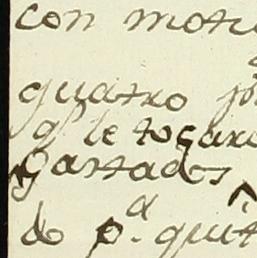 con moti
quatro
q.e le tocaro
gastados
de p.a quit